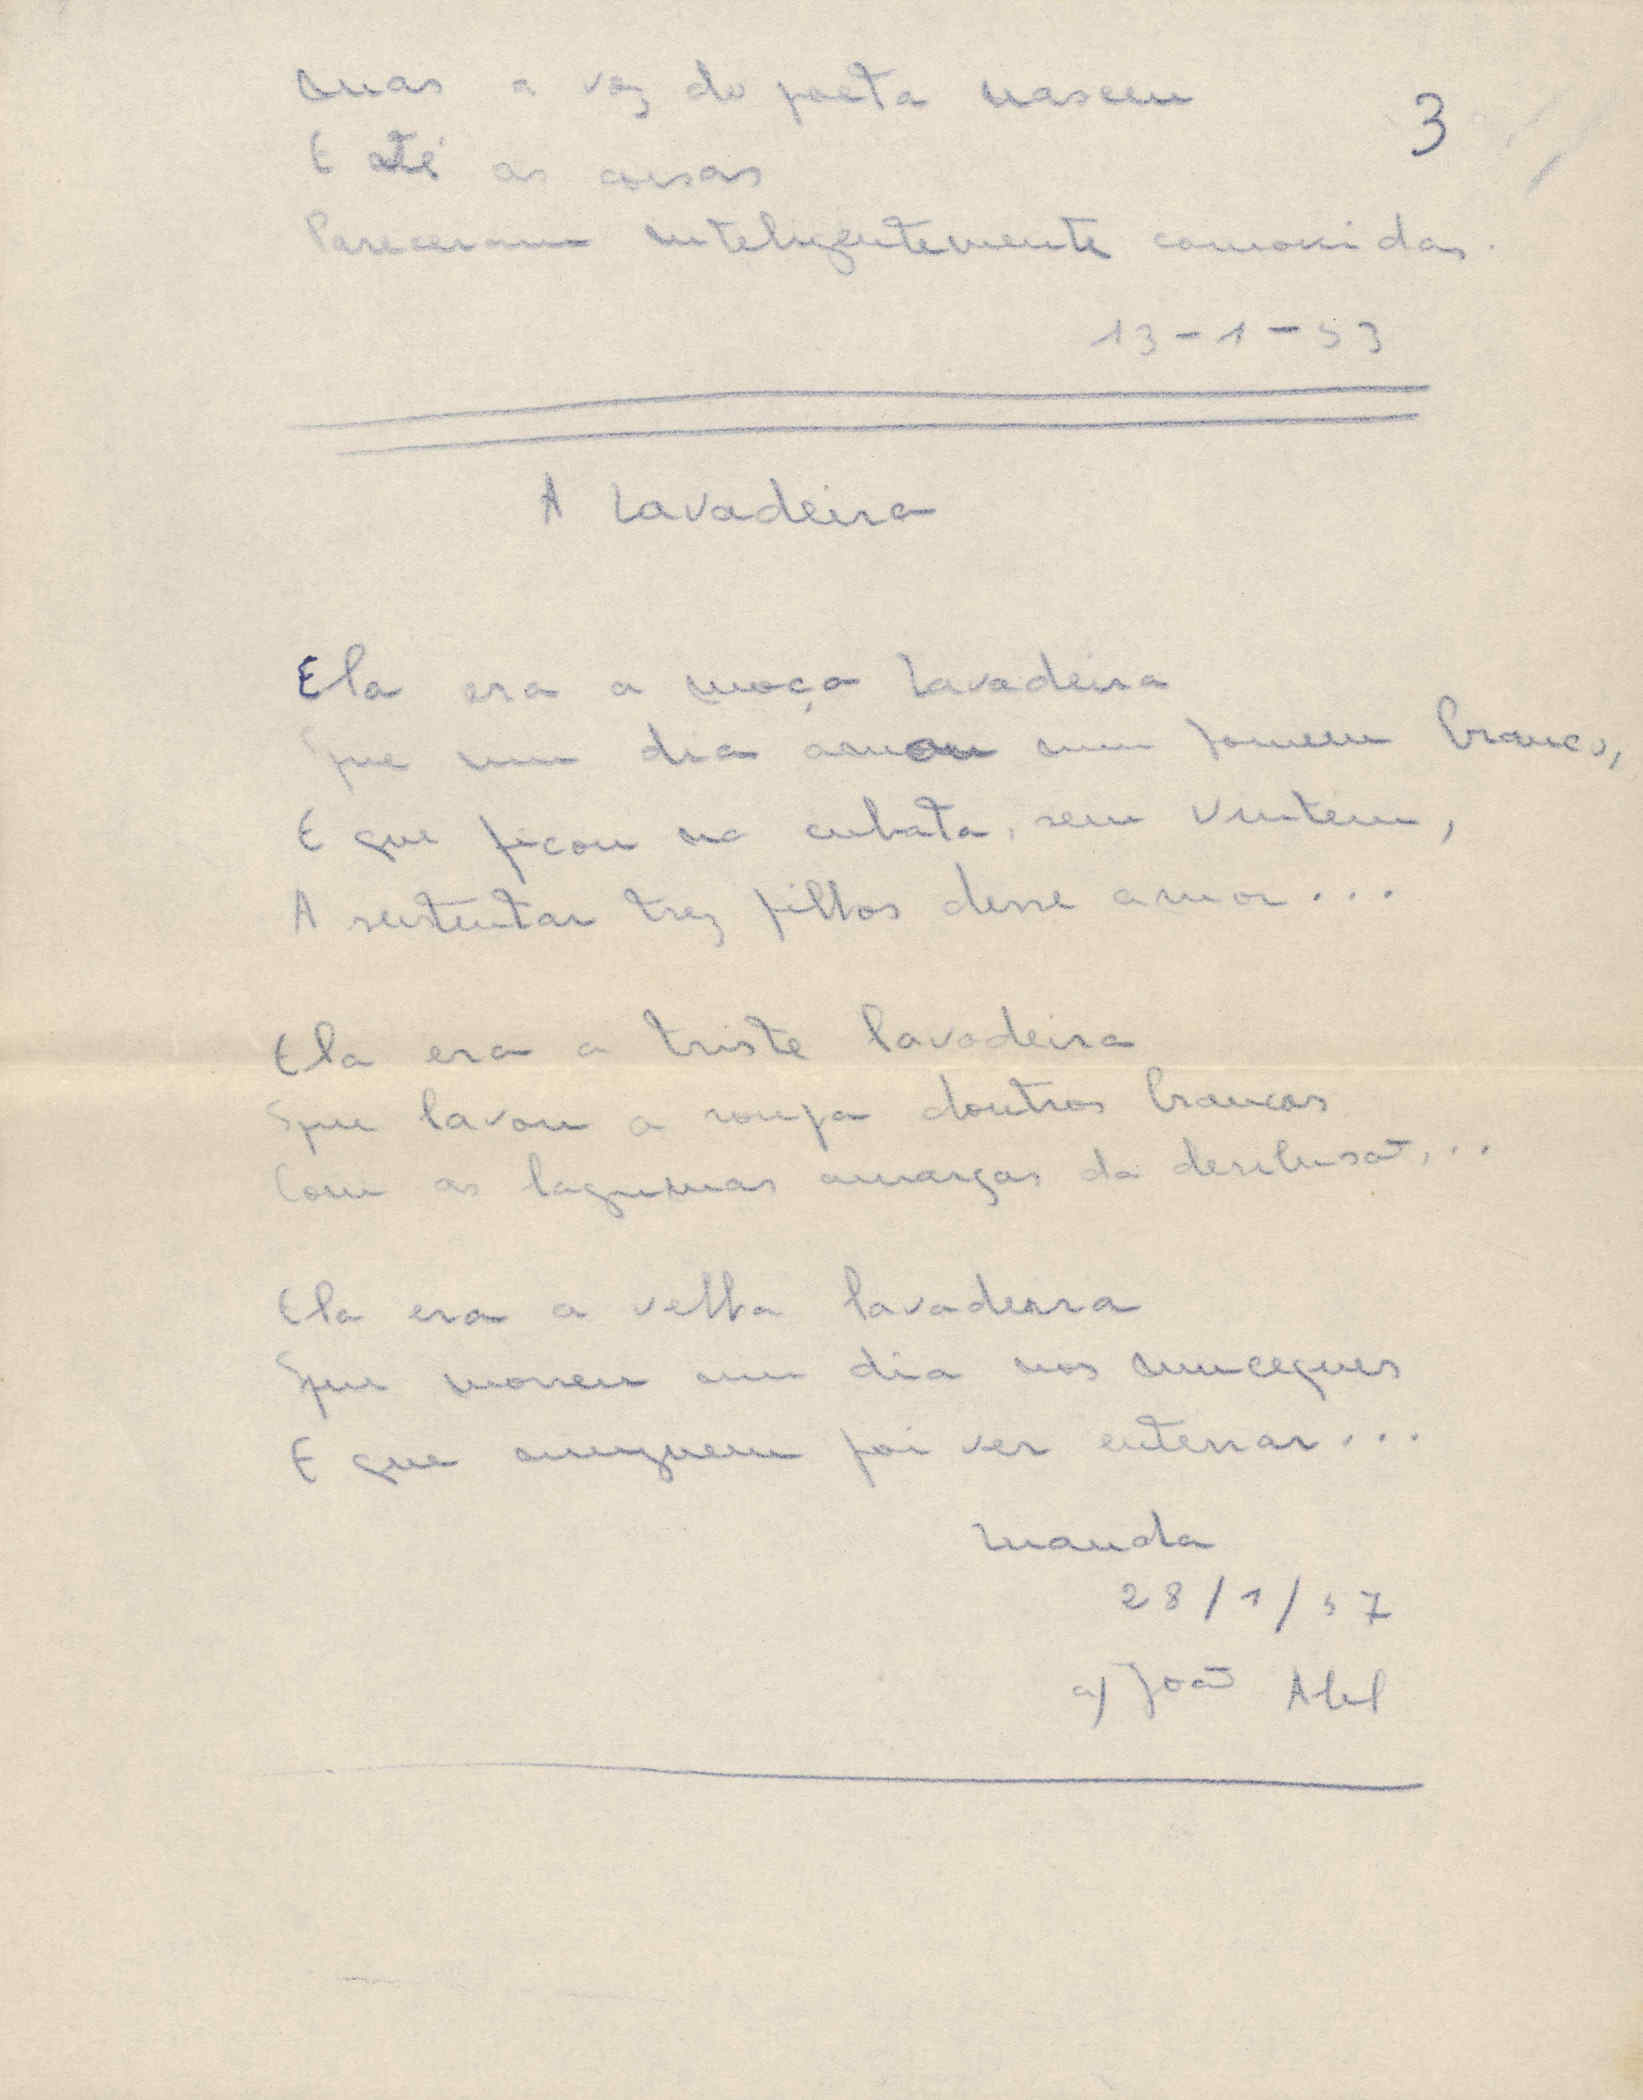 mas a voz do poeta nasceu
3
E até as coisas
Pareceram inteligentemente comovidas.
13-1-53
A Lavadeira
Ela era a moça lavadeira
Que um dia amou um homem branco,
E que ficou na cubata, sem vintem,
A sustentar trez filhos desse amor...
Ela era a triste lavadeira
Que lavou a roupa doutros brancos
Com as lagrimas amargas da desilusão...
Ela era a velha lavadeira
Que morreu um dia nos muceques
E que ninguem foi ver enterrar...
Luanda
28/1/57
a) João Abel